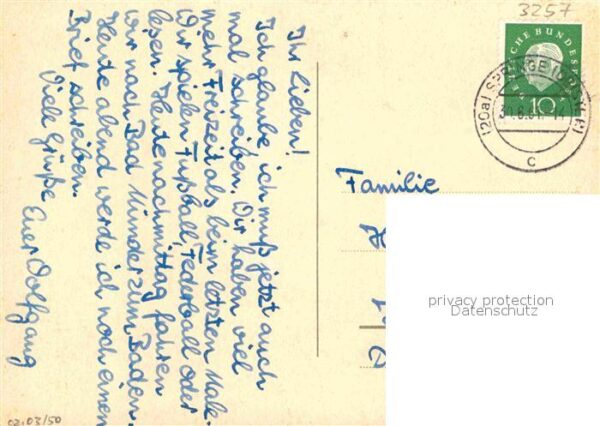 3257
DEUTSCHE BUNDESPOST
10
(20a) SPRINGE
c
Ihr Lieben!
Ich glaube ich muß jetzt auch
mal schreiben. Wir haben viel
mehr Freizeit als beim letzten Male.
Wir spielen Fußball, Federball oder
lesen. Heute nachmittag fahren
wir nach Bad Münder zum Baden.
Heute abend werde ich noch einen
Brief schreiben.
Viele Grüße
Euer Wolfgang
Familie
privacy protection
Datenschutz
02.03/50